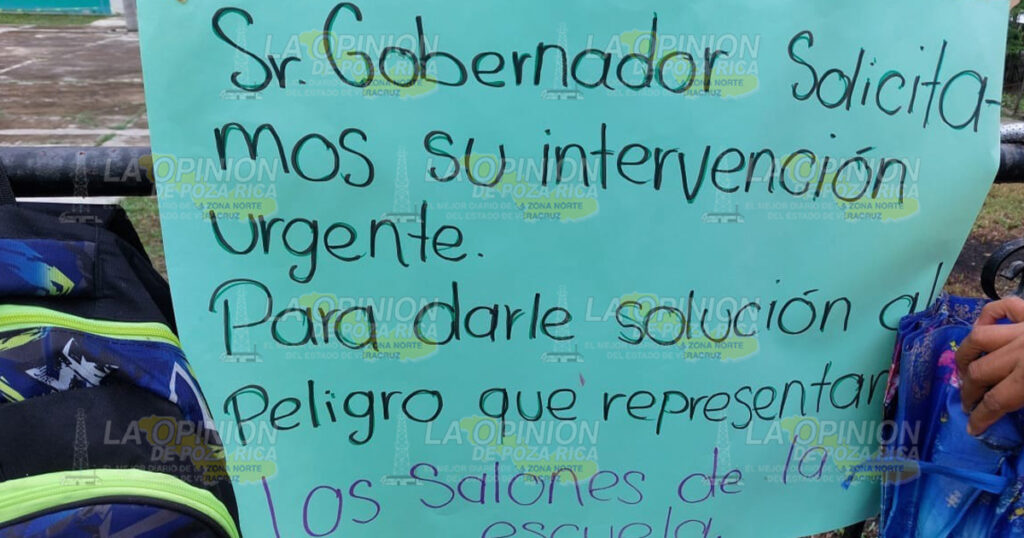 Sr. Gobernador Solicita-
mos su intervención
urgente.
Para darle solución al
Peligro que representan
los salones de la
escuela.
LA OPINION
DE POZA RICA
LA ZONA NORTE
EL MEJOR DIARIO DEL ESTADO DE VERACRUZ